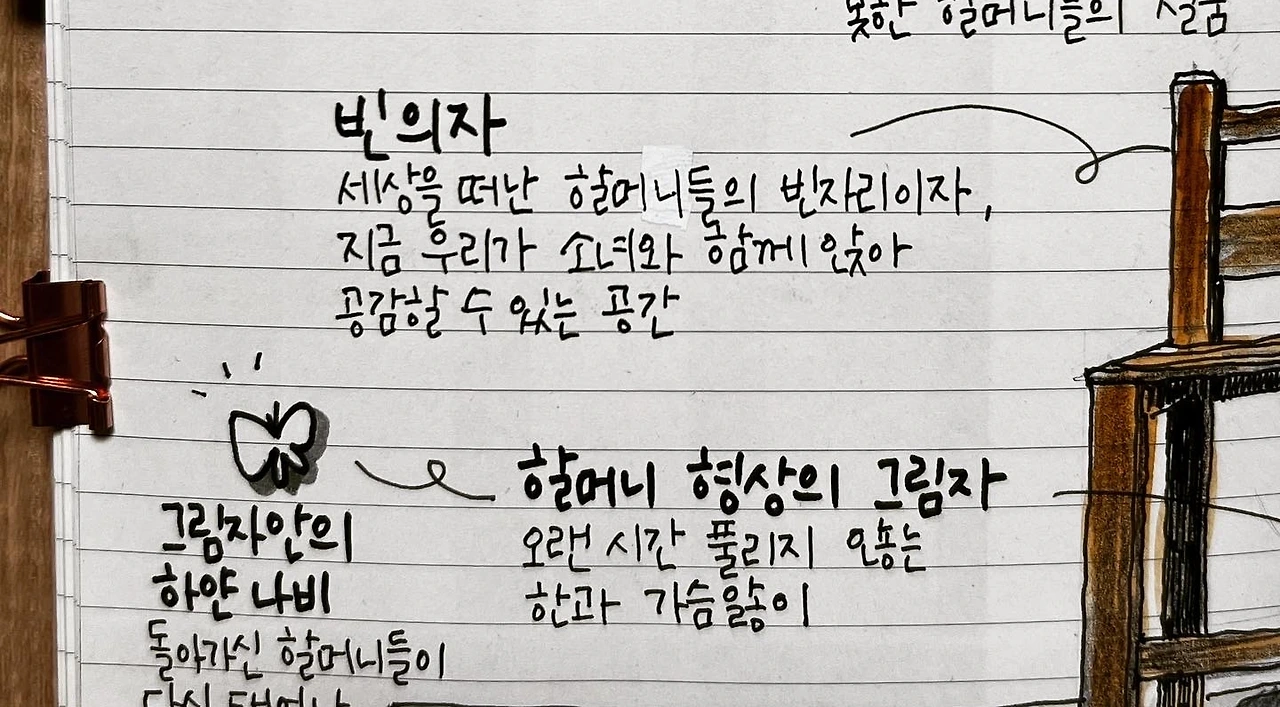 못한 할머니들의 설움
빈 의자
세상을 떠난 할머니들의 빈자리이자,
지금 우리가 소녀와 함께 앉아
공감할 수 있는 공간
할머니 형상의 그림자
오랜 시간 풀리지 않는
한과 가슴앓이
그림자안의
하얀 나비
돌아가신 할머니들이
다시 태어나